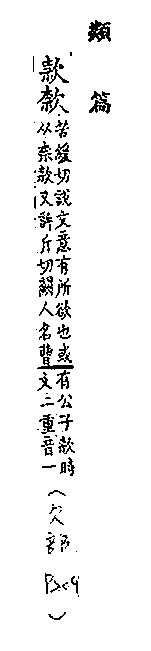 類篇
款歀
苦緩切說文意有所欲也或
从柰款又許斤切闕人名晉
有公子款時
文二重音一
(欠部 P304)